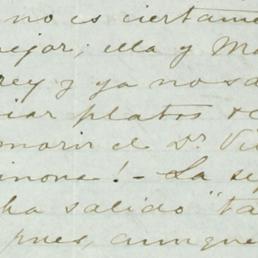 no es ciertame
ejor; ella y Ma
rey y ya nos d
iar platos de
morir el Dr. Vi
inone! - La se
ha salido "ta
pues, aunque